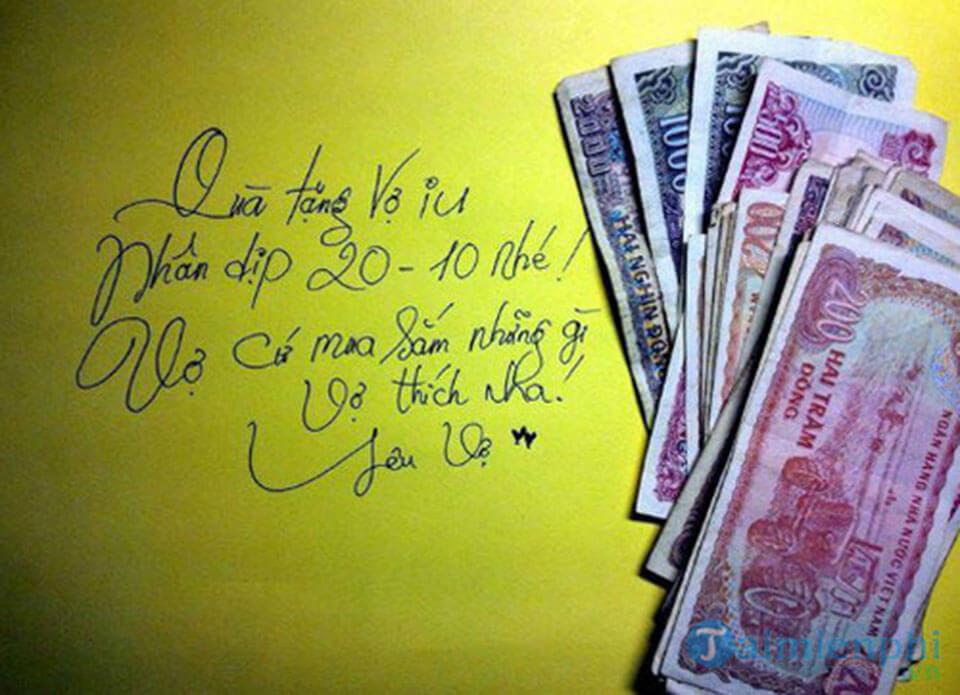 Quà tặng Vợ iu
Nhân dịp 20-10 nhé!
Vợ cứ mua sắm những gì
Vợ thích nha!
Yêu Vợ
2000
HAI NGHÌN ĐỒNG
1000
200
HAI TRĂM
ĐỒNG
NGÂN HÀNG NHÀ NƯỚC VIỆT NAM
Taimienphi
.vn